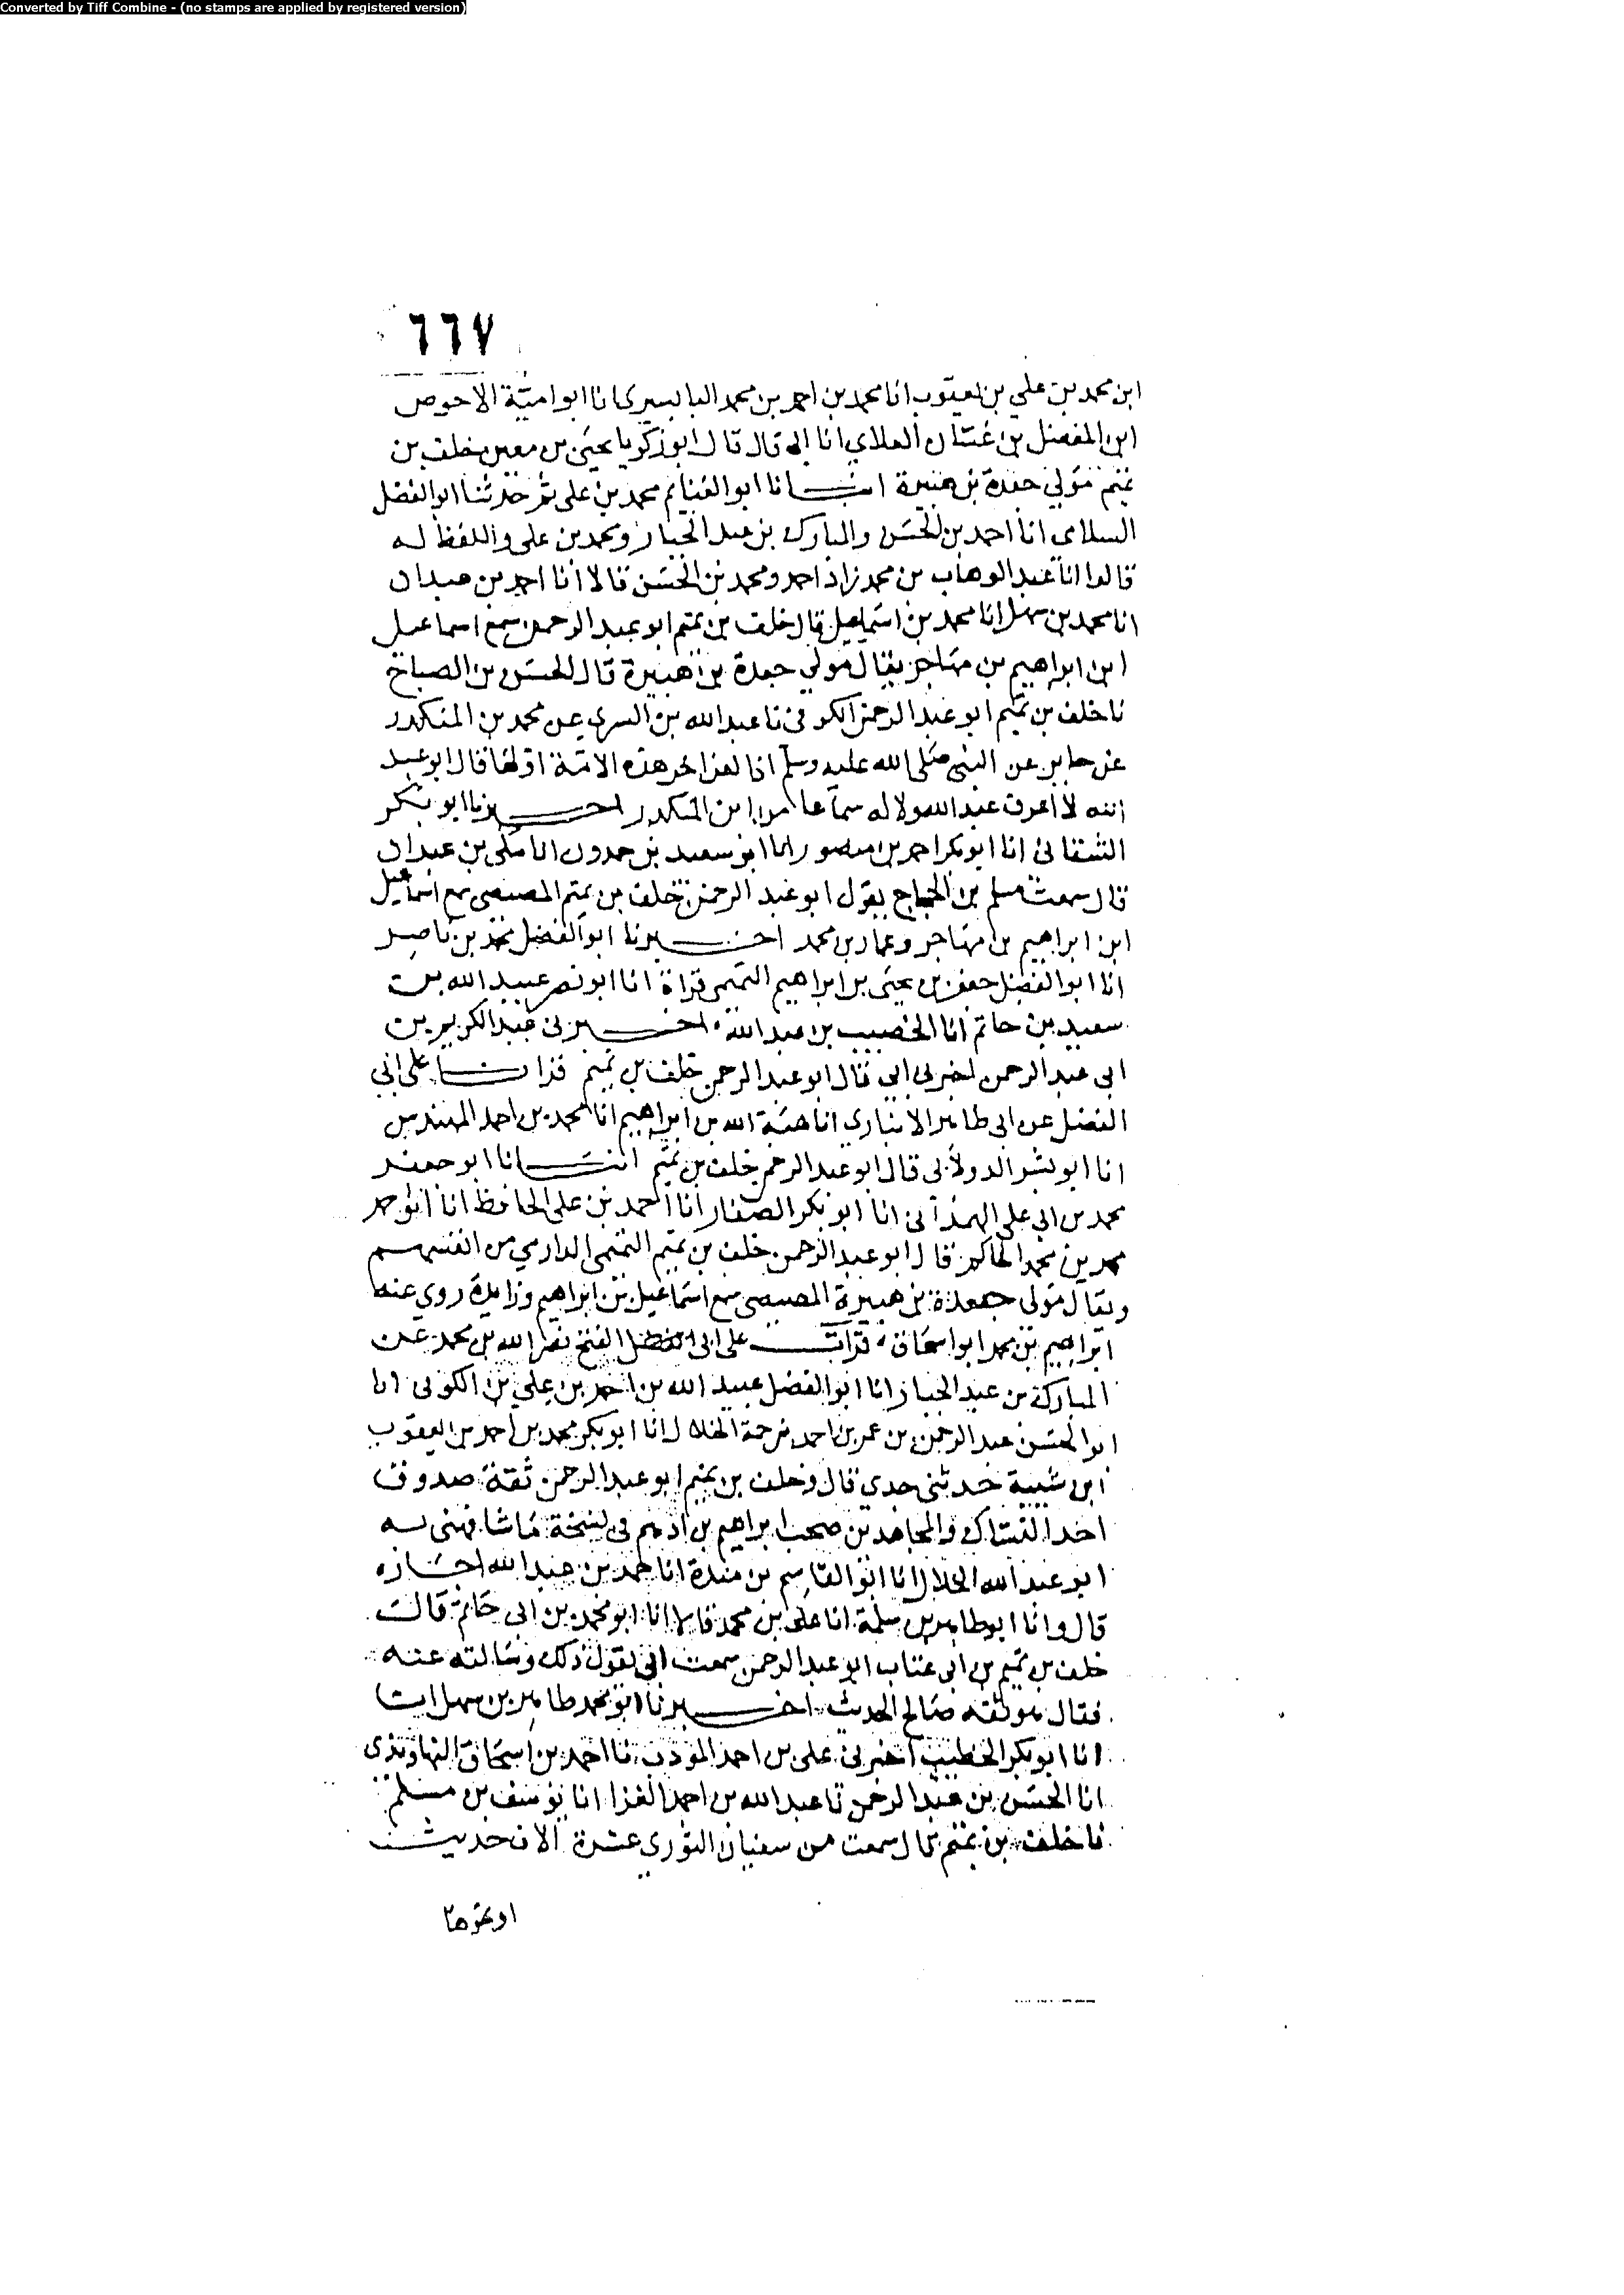 Converted by Tiff Combine - (no stamps are applied by registered version)
٦٦٧
ابن محمد بن علي بن يعقوب انا محمد بن احمد بن محمد البابسيرى انا ابو اميّة الاحوص
ابن المفضل بن غسّان الغلابي انا ابي قال قال ابو زكريا يحيى بن معين خلف بن
تميم مَولي جعدة بن هبيرة انبــانا ابو الغنايم محمد بن على ثم حدثنا ابو الفضل
السلامى انا احمد بن الحسَن والمبارك بن عبد الجبار ومحمد بن على واللفظ له
قالوا انا عبد الوهاب بن محمد زاد احمد ومحمد بن الحسَن قالا انا احمد بن عبدان
انا محمد بن سهل انا محمد بن اسمَاعيل قال خلف بن تميم ابو عبد الرحمن سمع اسماعيل
ابن ابراهيم بن مهَاجر يقال مولي جعدة بن هبيرة قال الحسَن بن الصباح
نا خلف بن تميم ابو عبد الرحمن الكوفى نا عبد الله بن السري عن محمد بن المنكدر
عن جابر عن النبي صَلى الله عليه وسلم اذا لعن اخر هذه الامّة اوّلها قال ابو عبد
الله لا اعرف عبد الله ولا له سماعا من ابن المنكدر اخــبرنا ابو بكر
الشقانى انا ابو بكر احمد بن منصور انا ابو سعيد بن حمدون انا مكى بن عبدان
قال سمعت مسلم بن الحجاج يقول ابو عبد الرحمن خلف بن تميم المصيصى سمع اسماعيل
ابن ابراهيم بن مهَاجر وعمار بن محمد اخــبرنا ابو الفضل محمد بن ناصر
انا ابو الفضل جعفر بن يحيَى بن ابراهيم التميمى قراة انا ابو نصر عبيد الله بن
سعيد بن حاتم انا الخصيب بن عبد الله اخــبرنى عبد الكريم بن
ابى عبد الرحمن اخبرنى ابي قال ابو عبد الرحمن خلف بن تميم قراتــ على ابي
الفضل عن ابى طاهر الانبارى انا هبَة الله بن ابراهيم انا محمد بن احمد المهندس
انا ابو بشر الدولابى قال ابو عبد الرحمن خلف بن تميم انبــانا ابو جعفر
محمد بن ابي على الهمذانى انا ابو بكر الصفار انا احمد بن على الحافظ انا ابو احمد
محمد بن محمد الحاكم قال ابو عبد الرحمن خلف بن تميم التميمى الدارمي من انفسهم
ويقال مَولى جعدة بن هبيرة المصيصى سمع اسمَاعيل بن ابراهيم وزايدة روي عنه
ابراهيم بن محمد ابو اسحَاق قراتــ على ابى الفتح نصر الله بن محمد عن
المبارك بن عبد الجبار انا ابو الفضل عبيد الله بن احمد بن علي بن الكوفى انا
ابو الحسَن عبد الرحمن بن عمر بن احمد بن حمة الخلال انا ابو بكر محمد بن احمد بن يعقوب
ابن شيبة حدثنى جدي قال وخلف بن تميم ابو عبد الرحمن ثقة صدوق
احد النسّاك والمجاهدين صحب ابراهيم بن ادهم فى نسخة مَا شافهنى به
ابو عبد الله الخلال انا ابو القاسم بن مندة انا حمد بن عبد الله اجَازه
قال وانا ابو طاهر بن سلمة انا على بن محمد قالا انا ابو محمد بن ابى حَاتم قالت
خلف بن تميم بن ابى عتاب ابو عبد الرحمن سمعت ابي يقول ذلك وسَالته عنه
فقال هو ثقه صَالح الحديث اخــبرنا ابو محمد طاهر بن سهل
انا ابو بكر الخطيب اخبرنى على بن احمد المؤدب نا احمد بن اسحَاق النهاوندى
انا الحسَن بن عبد الرحمن نا عبد الله بن احمد الغزا انا يوسف بن مسلم
نا خلف بن تميم قال سمعت من سفيان الثوري عشرة الاف حديث
او نحوها